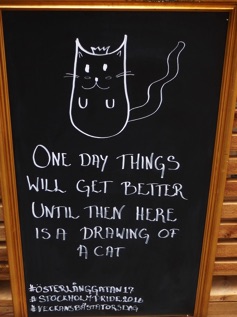 ONE DAY THINGS
WILL GET BETTER
UNTIL THEN HERE
IS A DRAWING OF
A CAT
#ÖSTERLÅNGGATAN17
#STOCKHOLMPRIDE2016